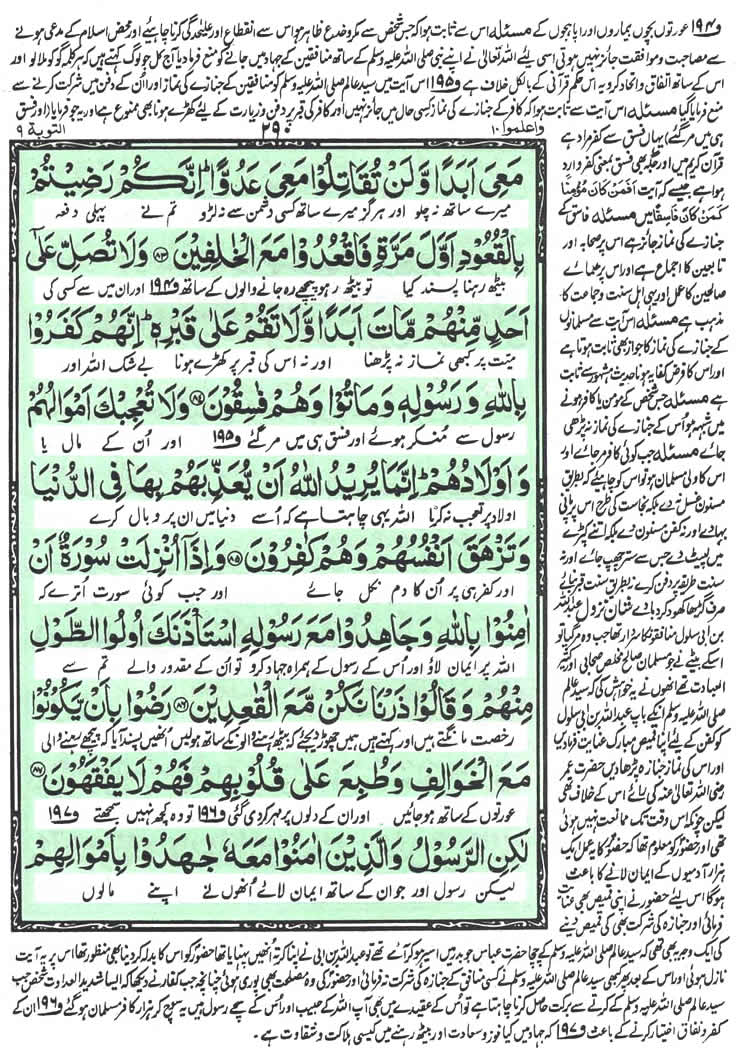 و۱۹۴ عورتوں بچوں بیماروں اور اپاہجوں کے مسئلہ اس سے ثابت ہوا کہ جس شخص سے مکر و خدع ظاہر ہو اس سے انقطاع اور علیحدگی کرنا چاہیئے اور محض اسلام کے مدعی ہونے
سے مصاحبت و موافقت جائز نہیں ہوتی اسی لیئے اللہ تعالیٰ نے اپنے نبی صلی اللہ علیہ وسلم کے ساتھ منافقین کے جہاد میں جانے کو منع فرما دیا آج کل جو لوگ کہتے ہیں کہ ہر کلمہ گو کو ملا لو اور
اس کے ساتھ اتفاق و اتحاد کرو یہ اس حکم قرآنی کے بالکل خلاف ہے و۱۹۵ اس آیت میں سید عالم صلی اللہ علیہ وسلم کو منافقین کے جنازے کی نماز اور ان کے دفن میں شرکت کرنے سے
منع فرمایا گیا مسئلہ اس آیت سے ثابت ہوا کہ کافر کے جنازے کی نماز کسی حال میں جائز نہیں اور کافر کی قبر پر دفن و زیارت کے لیئے کھڑے ہونا بھی ممنوع ہے اور یہ جو فرمایا (اور فسق
التوبة ۹
۲۹۰
واعلموا ۱۰
مَعِیَ اَبَدًا وَّلَنْ تُقَاتِلُوْا مَعِیَ عَدُوًّا ؕ اِنَّكُمْ رَضِیْتُمْ
میرے ساتھ نہ چلو اور ہرگز میرے ساتھ کسی دشمن سے نہ لڑو تم نے پہلی دفعہ
بِالْقُعُوْدِ اَوَّلَ مَرَّةٍ فَاقْعُدُوْا مَعَ الْخٰلِفِیْنَ ﴿۸۳﴾ وَلَا تُصَلِّ عَلٰۤی
بیٹھ رہنا پسند کیا تو بیٹھ رہو پیچھے رہ جانے والوں کے ساتھ و۱۹۴ اور ان میں سے کسی کی
اَحَدٍ مِّنْهُمْ مَّاتَ اَبَدًا وَّلَا تَقُمْ عَلٰی قَبْرِهٖ ؕ اِنَّهُمْ كَفَرُوْا
میّت پر کبھی نماز نہ پڑھنا اور نہ اس کی قبر پر کھڑے ہونا بے شک اللہ اور
بِاللّٰهِ وَ رَسُوْلِهٖ وَ مَاتُوْا وَ هُمْ فٰسِقُوْنَ ﴿۸۴﴾ وَلَا تُعْجِبْكَ اَمْوَالُهُمْ
رسول سے منکر ہوئے اور فسق ہی میں مر گئے و۱۹۵ اور اُن کے مال یا
وَ اَوْلَادُهُمْ ؕ اِنَّمَا یُرِیْدُ اللّٰهُ اَنْ یُّعَذِّبَهُمْ بِهَا فِی الدُّنْیَا
اولاد پر تعجب نہ کرنا اللہ یہی چاہتا ہے کہ اُسے دنیا میں ان پر و بال کرے
وَ تَزْهَقَ اَنْفُسُهُمْ وَ هُمْ كٰفِرُوْنَ ﴿۸۵﴾ وَ اِذَاۤ اُنْزِلَتْ سُوْرَةٌ اَنْ
اور کفر ہی پر اُن کا دم نکل جائے اور جب کوئی سورت اُترے کہ
اٰمِنُوْا بِاللّٰهِ وَ جَاهِدُوْا مَعَ رَسُوْلِهِ اسْتَاْذَنَكَ اُولُوا الطَّوْلِ
اللہ پر ایمان لاؤ اور اُس کے رسول کے ہمراہ جہاد کرو تو اُن کے مقدور والے تم سے
مِنْهُمْ وَ قَالُوْا ذَرْنَا نَكُنْ مَّعَ الْقٰعِدِیْنَ ﴿۸۶﴾ رَضُوْا بِاَنْ یَّكُوْنُوْا
رخصت مانگتے ہیں اور کہتے ہیں ہمیں چھوڑ دیجئے کہ بیٹھ رہنے والوں کے ساتھ ہو لیں اُنھیں پسند آیا کہ پیچھے رہنے والی
مَعَ الْخَوَالِفِ وَ طُبِعَ عَلٰی قُلُوْبِهِمْ فَهُمْ لَا یَفْقَهُوْنَ ﴿۸۷﴾
عورتوں کے ساتھ ہو جائیں اور ان کے دلوں پر مہر کر دی گئی و۱۹۶ تو وہ کچھ نہیں سمجھتے و۱۹۷
لٰكِنِ الرَّسُوْلُ وَالَّذِیْنَ اٰمَنُوْا مَعَهٗ جٰهَدُوْا بِاَمْوَالِهِمْ
لیکن رسول اور جو ان کے ساتھ ایمان لائے اُنھوں نے اپنے مالوں
ہی میں مر گئے) یہاں فسق سے کفر مراد ہے
قرآن کریم میں اور جگہ بھی فسق بمعنی کفر وارد
ہوا ہے جیسے کہ آیت اَفَمَنْ كَانَ مُؤْمِنًا
كَمَنْ كَانَ فَاسِقًا میں مسئلہ فاسق کے
جنازے کی نماز جائز ہے اس پر صحابہ اور
تابعین کا اجماع ہے اور اس پر علمائے
صالحین کا عمل اور یہی اہل سنت و جماعت کا
مذہب ہے مسئلہ اس آیت سے مسلمانوں
کے جنازے کی نماز کا جواز بھی ثابت ہوتا ہے
اور اس کا فرض کفایہ ہونا حدیث مشہور سے ثابت
ہے مسئلہ جس شخص کے مومن یا کافر ہونے
میں شبہ ہو اُس کے جنازے کی نماز نہ پڑھی
جائے مسئلہ جب کوئی کافر مر جائے اور
اس کا ولی مسلمان ہو تو اس کو چاہیئے کہ بطریق
مسنون غسل نہ دے بلکہ نجاست کی طرح اس پر پانی
بہا دے اور نہ کفن مسنون دے بلکہ اتنے کپڑے
میں لپیٹ دے جس سے ستر چھپ جائے اور نہ
سنت طریقہ پر دفن کرے نہ بطریق سنت قبر بنائے
صرف گڑھا کھود کر دبا دے شان نزول عبداللہ
بن ابی سلول منافقوں کا سردار تھا جب وہ مر گیا تو
اسکے بیٹے نے جو مسلمان صالح مخلص صحابی اور کثیر
العبادت تھے انھوں نے یہ خواہش کی کہ سید عالم
صلی اللہ علیہ وسلم انکے باپ عبداللہ بن ابی سلول
کو کفن کے لیئے اپنا قمیص مبارک عنایت فرما دیں
اور اس کی نماز جنازہ پڑھا دیں حضرت عمر
رضی اللہ تعالیٰ عنہ کی رائے اس کے خلاف تھی
لیکن چونکہ اس وقت تک ممانعت نہیں ہوئی
تھی اور حضور کو معلوم تھا کہ حضور کا یہ عمل ایک
ہزار آدمیوں کے ایمان لانے کا باعث
ہوگا اس لیئے حضور نے اپنی قمیص بھی عنایت
فرمائی اور جنازہ کی شرکت بھی کی قمیص دینے
کی ایک وجہ یہ بھی تھی کہ سید عالم صلی اللہ علیہ وسلم کے چچا حضرت عباس جو بدر میں اسیر ہو کر آئے تھے تو عبداللہ بن ابی نے اپنا کرتہ اُنھیں پہنایا تھا حضور کو اس کا بدلہ کر دینا بھی منظور تھا اس پر یہ آیت
نازل ہوئی اور اس کے بعد پھر کبھی سید عالم صلی اللہ علیہ وسلم نے کسی منافق کے جنازہ کی شرکت نہ فرمائی اور حضور کی وہ مصلحت بھی پوری ہوئی چنانچہ جب کفار نے دیکھا کہ ایسا شدید العداوت شخص جب
سید عالم صلی اللہ علیہ وسلم کے کرتے سے برکت حاصل کرنا چاہتا ہے تو اُس کے عقیدے میں بھی آپ اللہ کے حبیب اور اُس کے سچے رسول ہیں یہ سوچ کر ہزار کافر مسلمان ہو گئے و۱۹۶ ان کے
کفر و نفاق اختیار کرنے کے باعث و۱۹۷ کہ جہاد میں کیا فوز و سعادت اور بیٹھ رہنے میں کیسی ہلاکت و شقاوت ہے ۔